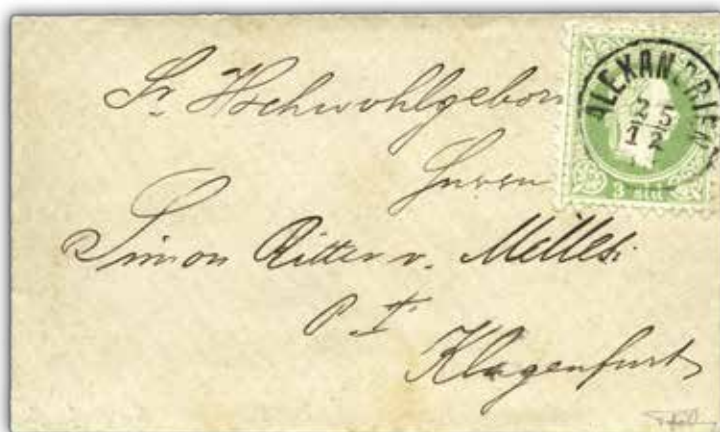 Sr. Hochwohlgeboren
Herrn
Simon Ritter v. Millesi
P. T.
Klagenfurt
ALEXANDRIEN
25
12
3 sld